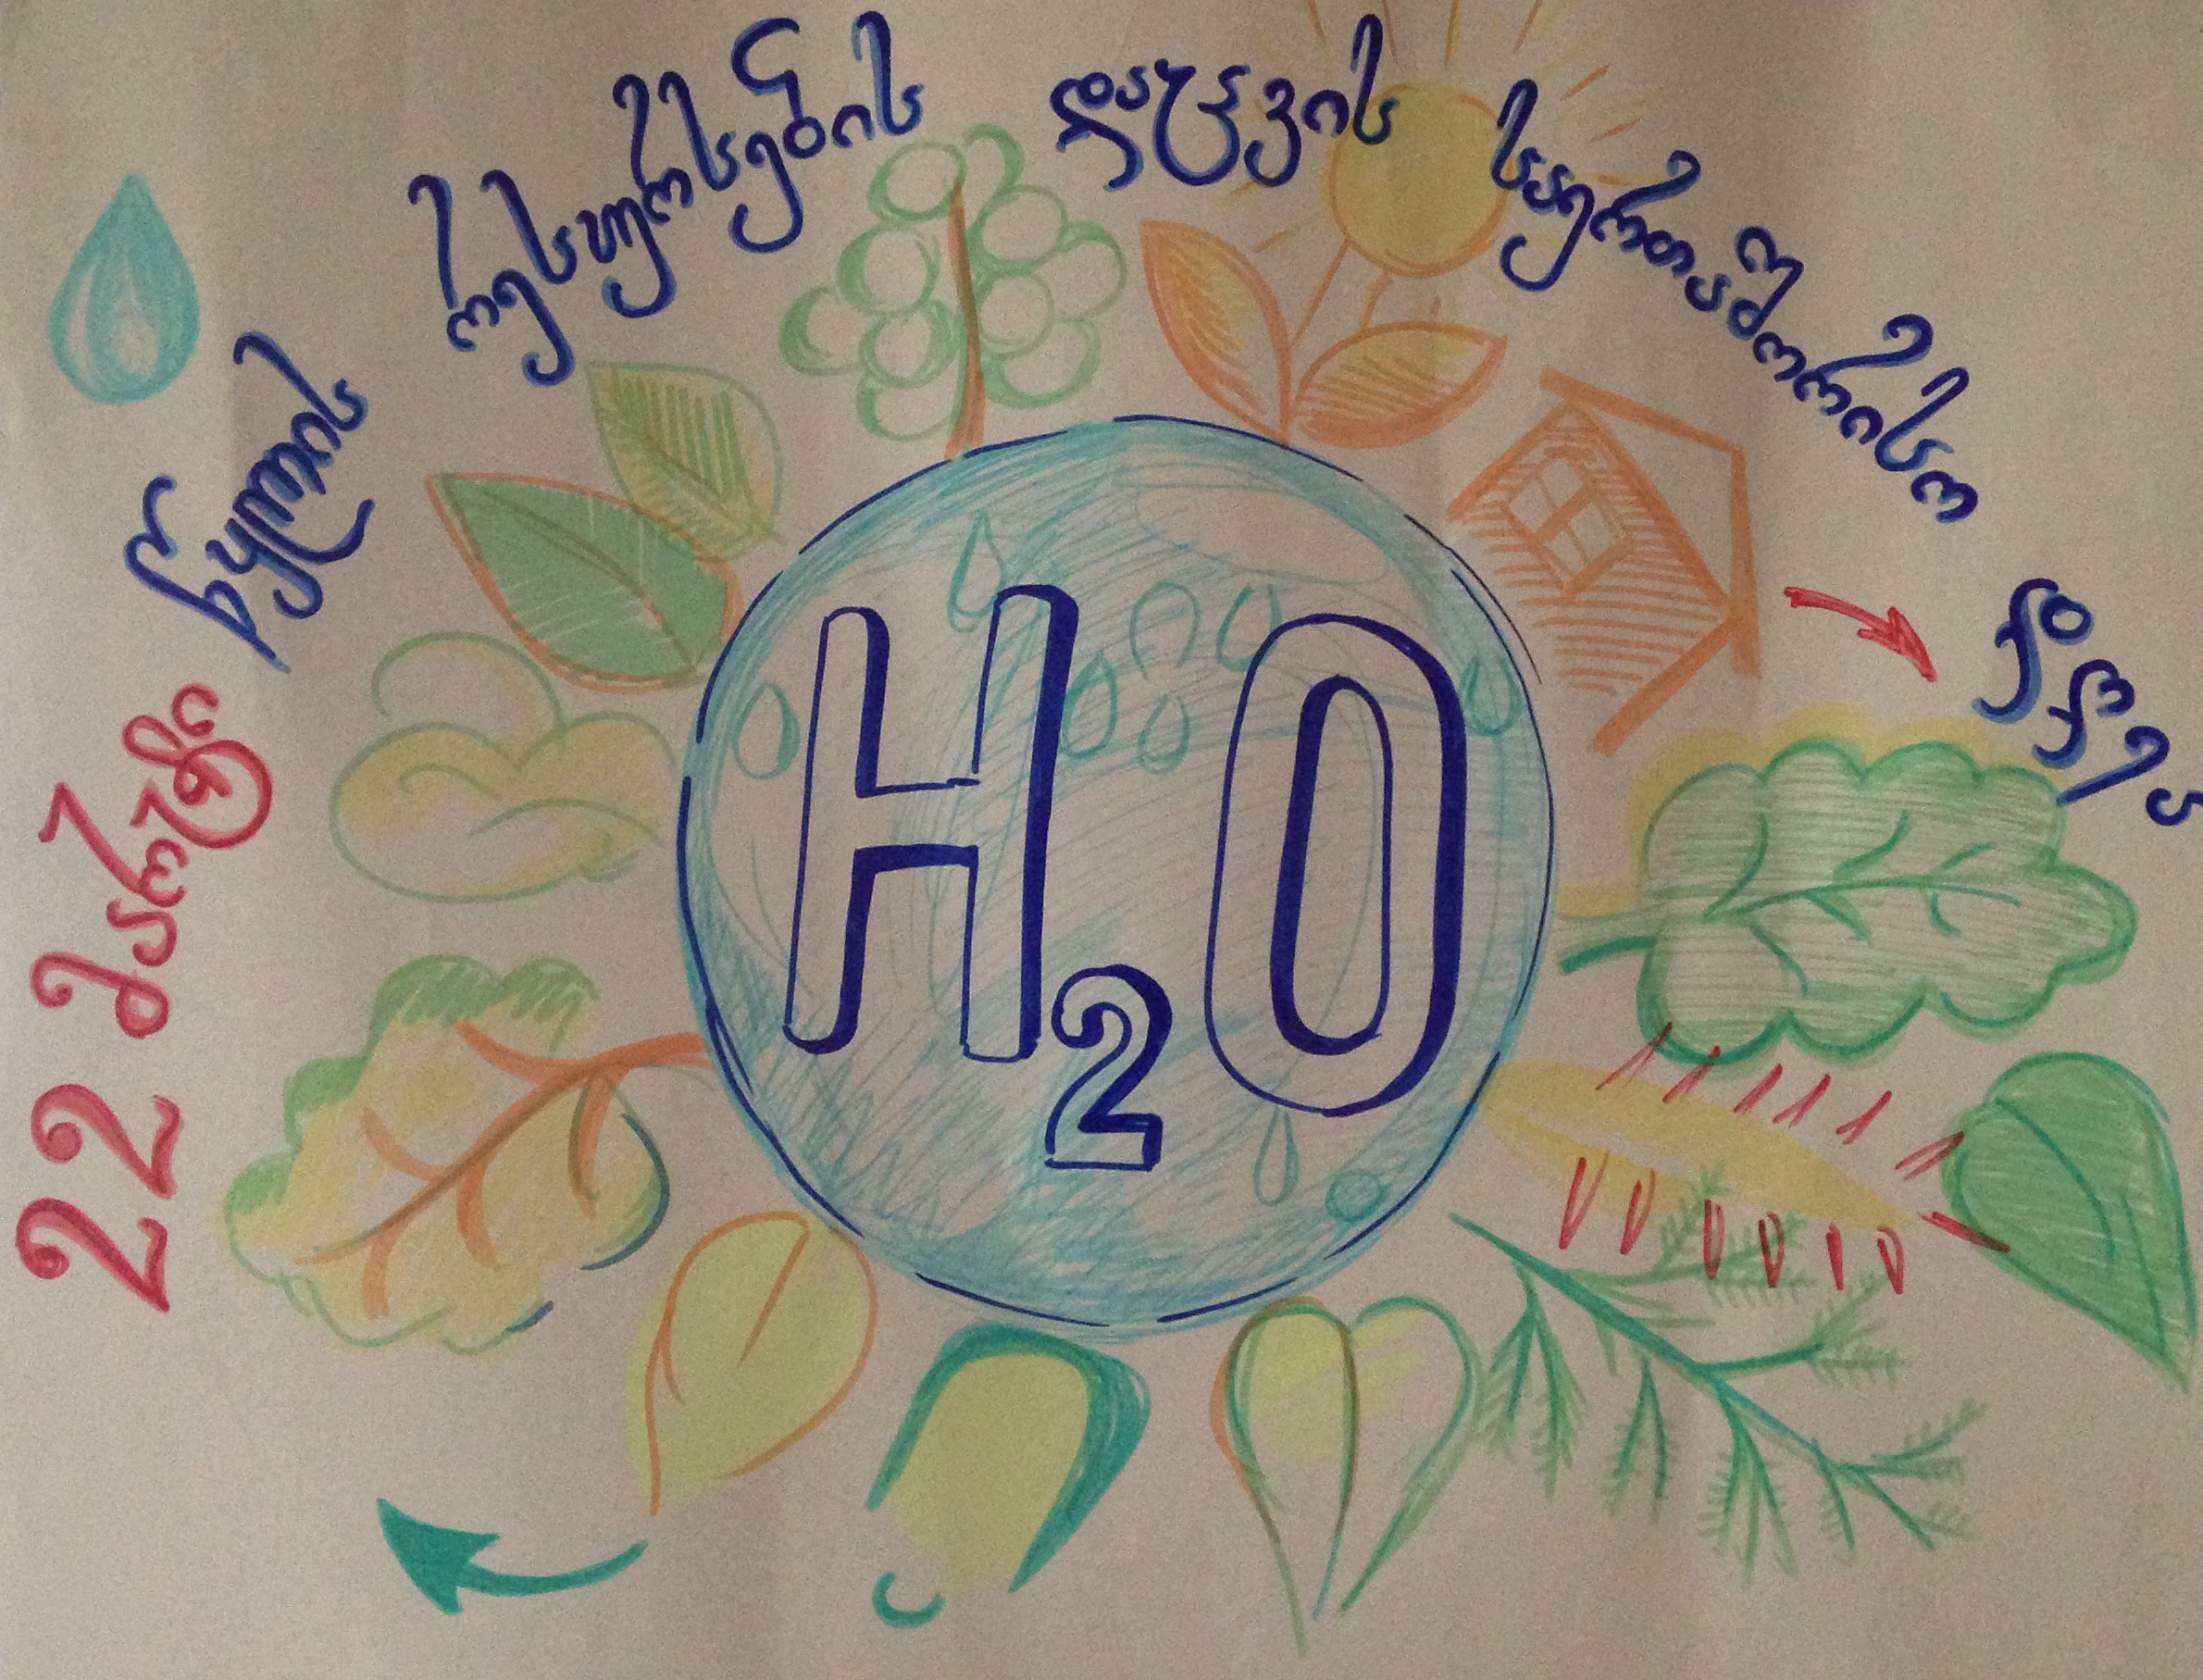 22 მარტი
წყლის რესურსების დაცვის საერთაშორისო დღე
H₂O